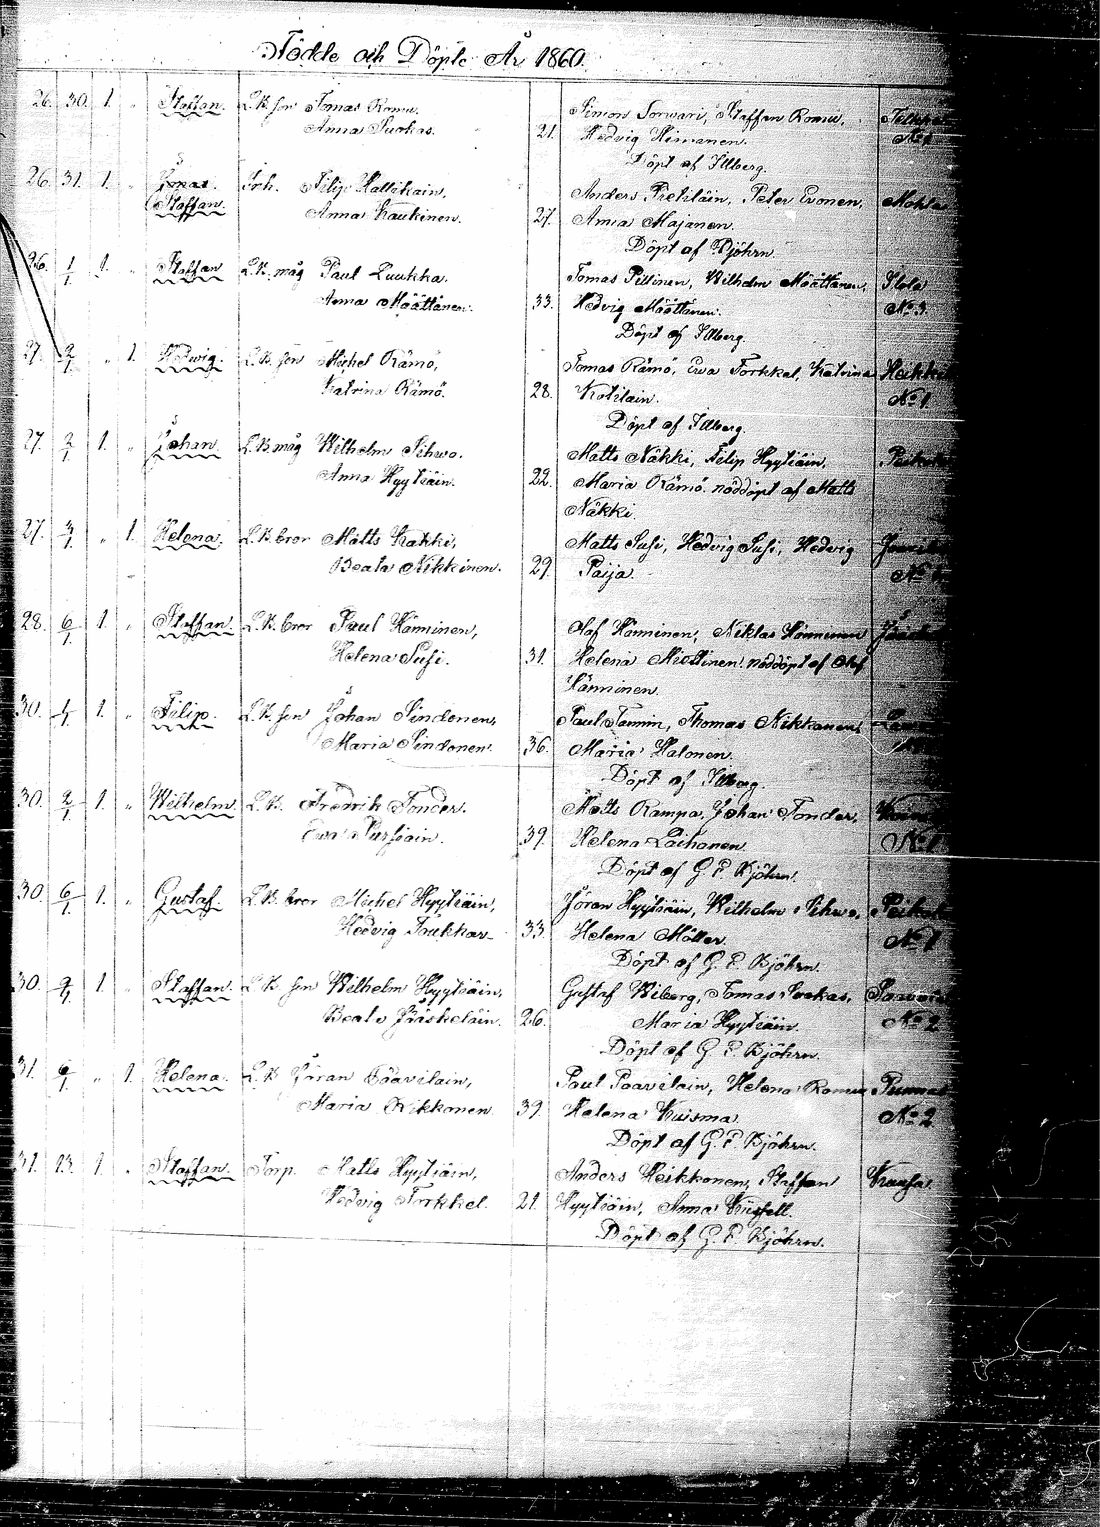 Födde och Döpte År 1860.
26. 30. 1. " Staffan. L.B. son Tomas Romu.
Anna Suokas. 21.
Simon Sorwari, Staffan Romu,
Hedvig Himanen. No 1
Döpt af Illberg.
26. 31. 1. " Jonas. Inh. Filip Hattikain,
Staffan. Anna Kaukinen. 27.
Anders Pietiläin, Peter Evonen, Mohla
Anna Majanen.
Döpt af Björn.
26. 1/1 1. " Staffan L.B. måg Paul Luukka.
Anna Määttänen. 33.
Tomas Pillinen, Wilhelm Määttänen, Ilola
Hedvig Määttänen. No 3.
Döpt af Illberg.
27. 2/1 " 1. Hedwig. L.B. son Michel Rämö,
Katrina Rämö. 28.
Tomas Rämö, Ewa Torkkel, Katrina
Kotilain. No 1.
Döpt af Illberg.
27. 2/1 1. " Johan. L.B. måg Wilhelm Sihwo.
Anna Hyytiäin. 22.
Matts Näkki, Filip Hyytiäin,
Maria Rämö. nöddöpt af Matts
Näkki.
27. 3/1 " 1. Helena. L.B. bror Matts Kakki,
Beata Nikkinen. 29.
Matts Susi, Hedvig Susi, Hedvig
Paija. No
28. 6/1 1. " Staffan. L.B. bror Paul Hänninen,
Helena Susi. 31.
Olaf Hänninen, Niklas Hänninen
Helena Miettinen. nöddöpt af Olof
Hänninen.
30. 1/1 1. " Filip. L.B. son Johan Sindonen,
Maria Sindonen. 36.
Paul Tammin, Thomas Nikkanen,
Maria Halonen.
Döpt af Illberg.
30. 2/1 1. " Wilhelm. L.B. Fredrik Tonder.
Ewa Pursiain. 39.
Matts Rampa, Johan Tonder,
Helena Laihanen. No 1
Döpt af G F Björhn.
30. 6/1 1. " Gustaf. L.B. bror Michel Hyytiäin,
Hedvig Toukkar 33.
Jöran Hyytiäin, Wilhelm Sihwo,
Helena Möller. No 1
Döpt af G. F. Björhn.
30. 9/1 1 " Staffan. L.B. son Wilhelm Hyytiäin,
Beata Jääskeläin. 26.
Gustaf Wiberg, Tomas Suokas,
Maria Hyytiäin. No 2
Döpt af G F Björhn.
31. 6/1 " 1. Helena. L.B Jöran Paavilain,
Maria Kikkonen 39.
Paul Paavilain, Helena Romu
Helena Kuisma. No 2
Döpt af G. F. Björhn.
31. 13. 1. " Staffan. Torp. Matts Hyytiäin,
Hedvig Torkkel. 21.
Anders Heikkonen, Staffan
Hyytiäin, Anna
Döpt af G. F. Björhn.